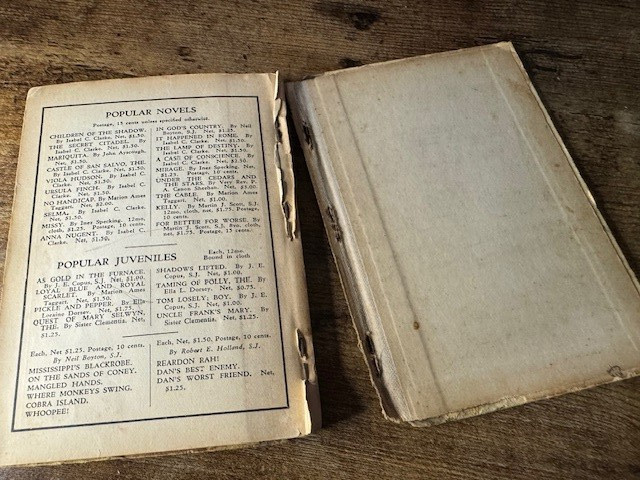 POPULAR NOVELS
Postage, 15 cents unless specified otherwise.
CHILDREN OF THE SHADOW.
By Isabel C. Clarke. Net, $1.50.
THE SECRET CITADEL. By
Isabel C. Clarke. Net, $1.50.
MARIQUITA. By John Ayscough.
Net, $1.50.
CASTLE OF SAN SALVO, THE.
By Isabel C. Clarke. Net, $1.50.
VIOLA HUDSON. By Isabel C.
Clarke. Net, $1.50.
URSULA FINCH. By Isabel C.
Clarke. Net, $1.50.
NO HANDICAP. By Marion Ames
Taggart. Net, $2.00.
SELMA. By Isabel C. Clarke.
Net, $1.50.
MISSY. By Inez Specking. 12mo,
cloth, $1.25. Postage, 10 cents.
ANNA NUGENT. By Isabel C.
Clarke. Net, $1.50.
IN GOD'S COUNTRY. By Neil
Boyton, S.J. Net, $1.25.
IT HAPPENED IN ROME. By
Isabel C. Clarke. Net, $1.50.
THE LAMP OF DESTINY. By
Isabel C. Clarke. Net, $1.50.
A CASE OF CONSCIENCE. By
Isabel C. Clarke. Net, $2.50.
MIRAGE. By Inez Specking. Net,
$1.25. Postage, 10 cents.
UNDER THE CEDARS AND
THE STARS. By Very Rev. P.
A. Canon Sheehan. Net, $3.00.
CABLE. By Marion Ames
Taggart. Net, $1.00.
KELLY. By Martin J. Scott, S.J.
12mo, cloth, net, $1.75. Postage,
10 cents.
FOR BETTER FOR WORSE. By
Martin J. Scott, S.J. 8vo, cloth,
net, $1.75. Postage, 15 cents.
POPULAR JUVENILES
Each, 12mo.
Bound in cloth.
AS GOLD IN THE FURNACE.
By J. E. Copus, S.J. Net, $1.00.
LOYAL BLUE AND ROYAL
SCARLET. By Marion Ames
Taggart. Net, $1.50.
PICKLE AND PEPPER. By Ella
Loraine Dorsey. Net, $1.75.
QUEST OF MARY SELWYN,
THE. By Sister Clementia. Net,
$1.25.
SHADOWS LIFTED. By J. E.
Copus, S.J. Net, $1.00.
TAMING OF POLLY, THE. By
Ella L. Dorsey. Net, $0.75.
TOM LOSELY; BOY. By J. E.
Copus, S.J. Net, $1.00.
UNCLE FRANK'S MARY. By
Sister Clementia. Net, $1.25.
Each, Net $1.25, Postage, 10 cents.
By Neil Boyton, S.J.
MISSISSIPPI'S BLACKROBE.
ON THE SANDS OF CONEY.
MANGLED HANDS.
WHERE MONKEYS SWING.
COBRA ISLAND.
WHOOPEE!
Each, Net $1.50, Postage, 10 cents.
By Robert E. Holland, S.J.
REARDON RAH!
DAN'S BEST ENEMY.
DAN'S WORST FRIEND. Net,
$1.25.